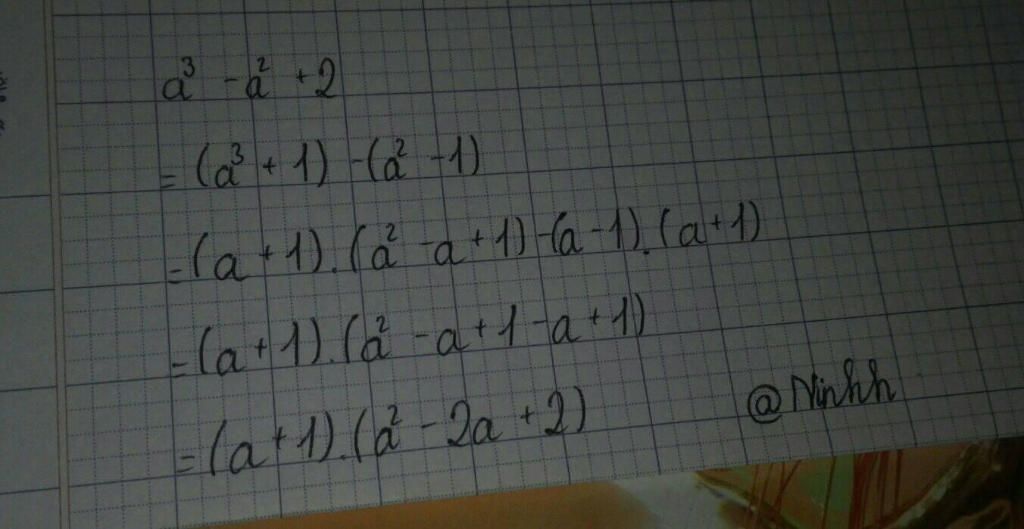 a³ - a² + 2
= (a³ + 1) - (a² - 1)
= (a + 1).(a² - a + 1) - (a - 1).(a + 1)
= (a + 1).(a² - a + 1 - a + 1)
= (a + 1).(a² - 2a + 2)
@Ninhh